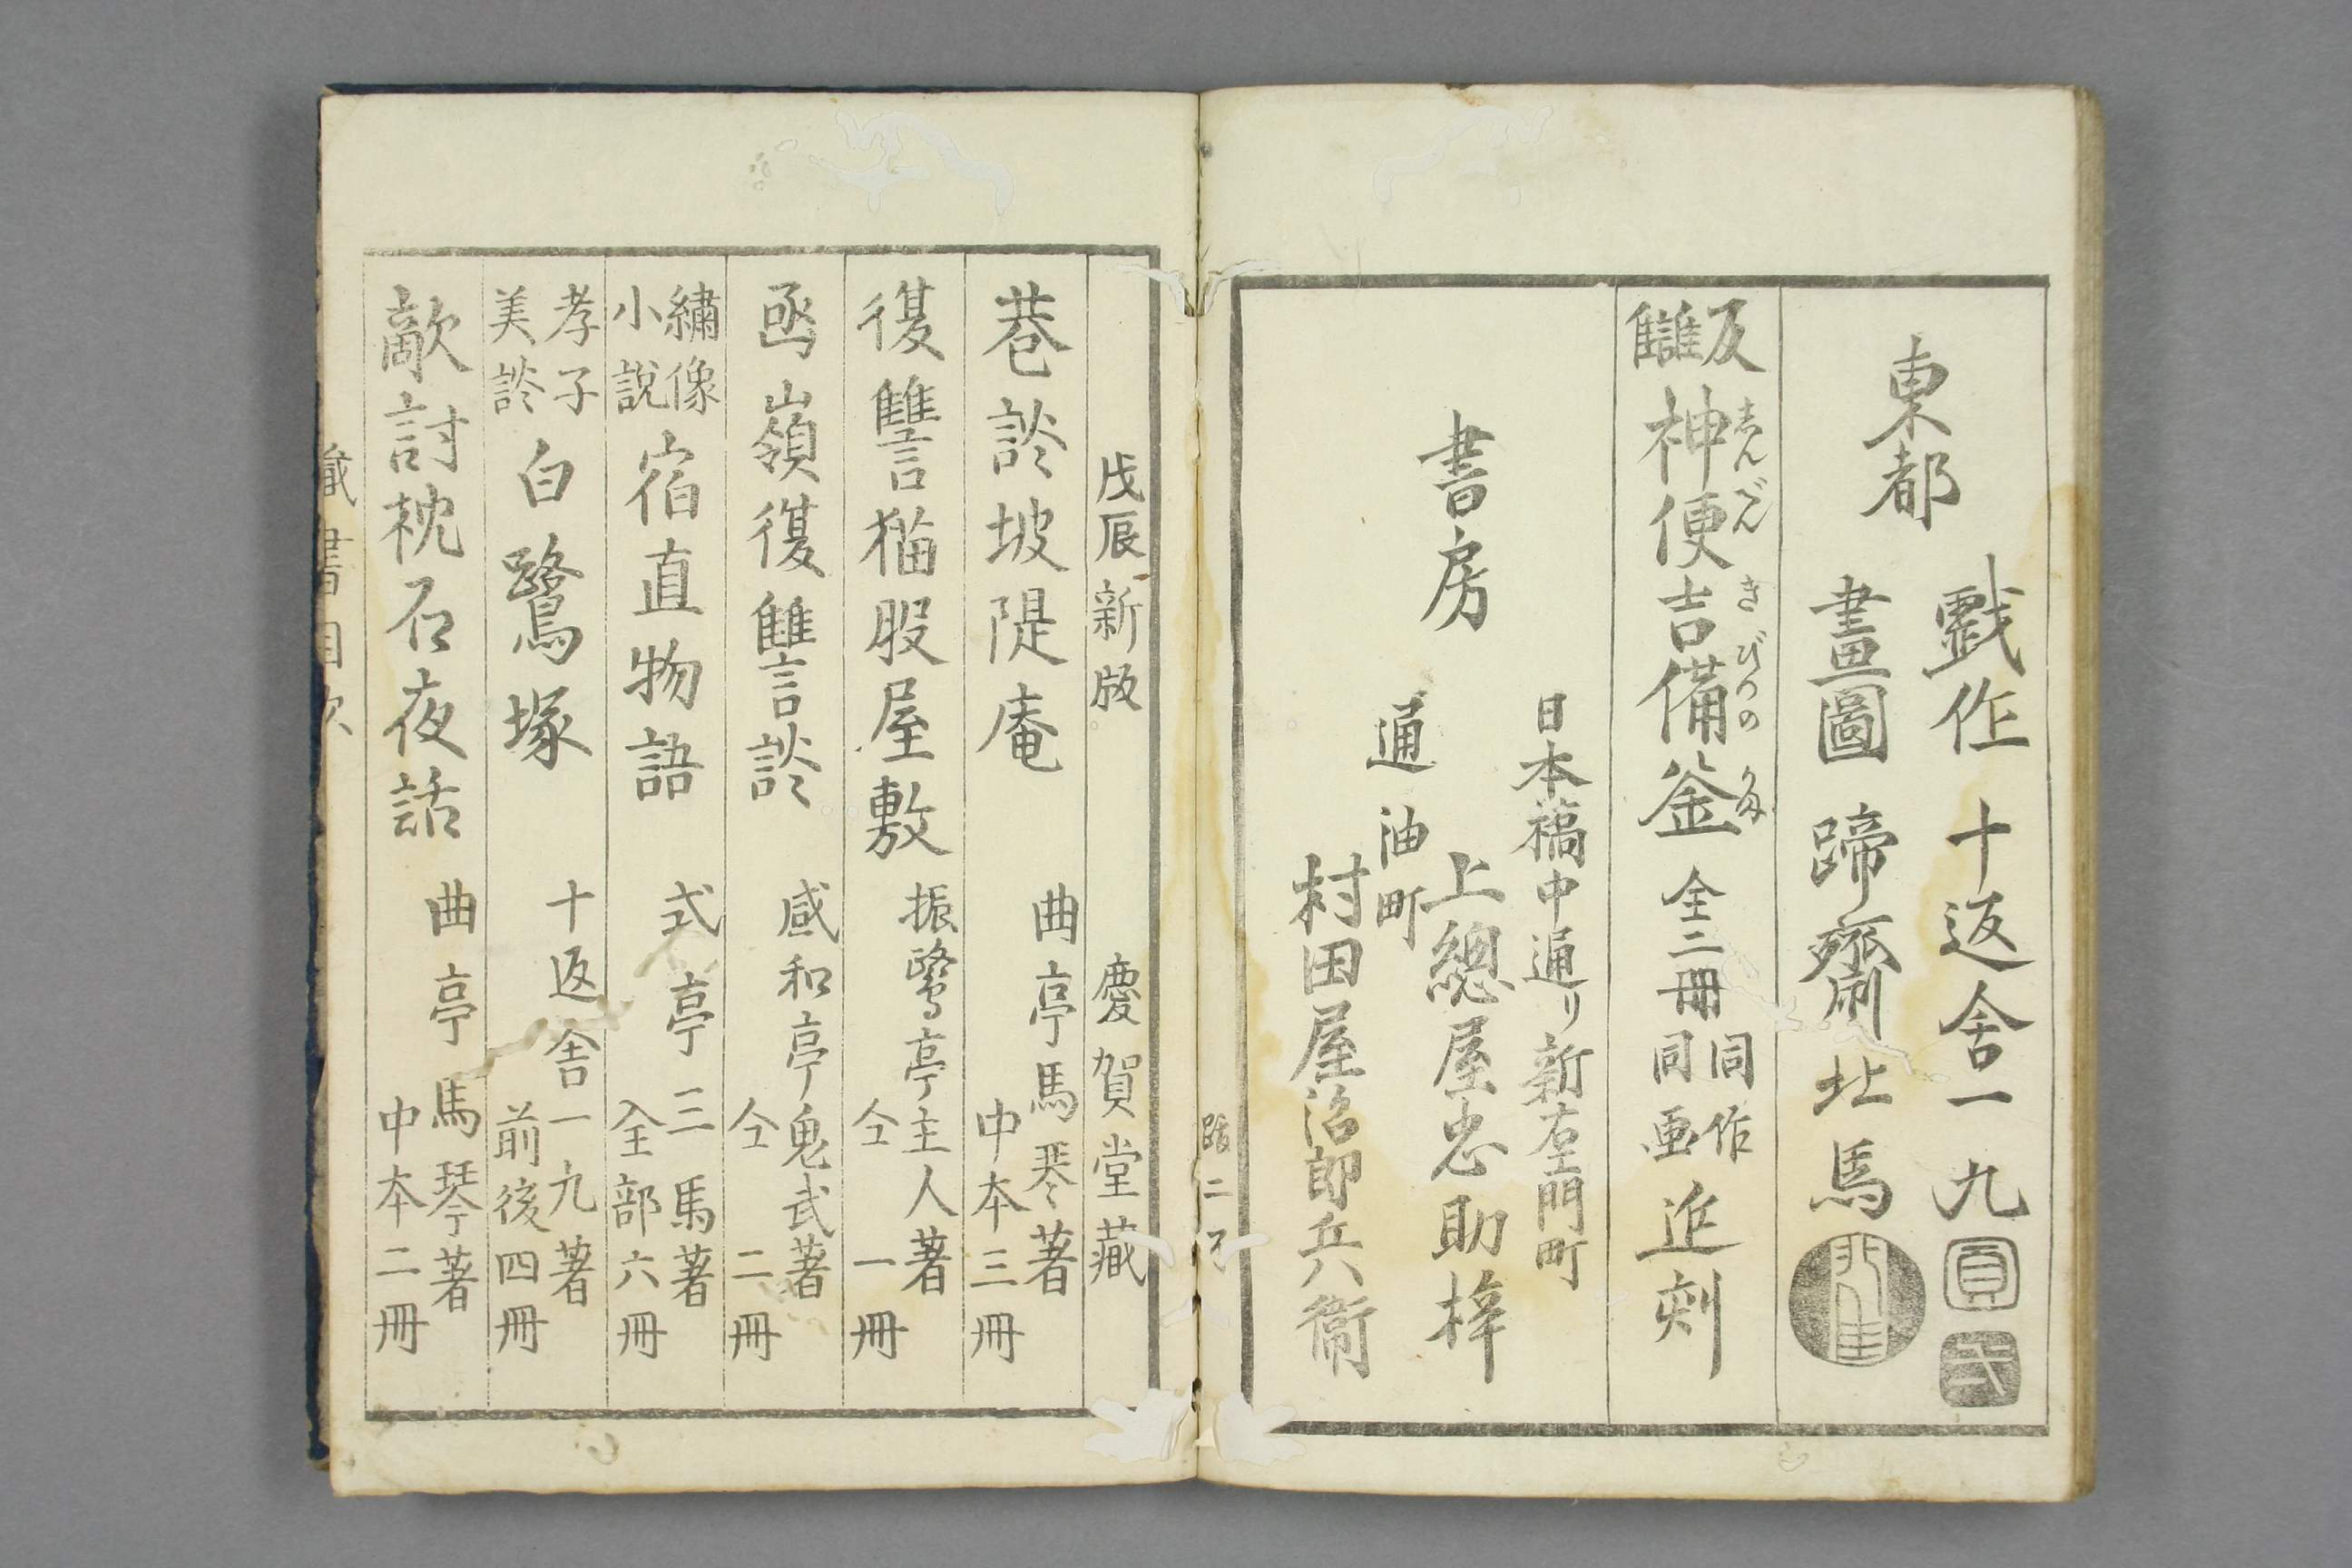 東都
戲作 十返舍一九
畫圖 蹄齋北馬
反讎 神便吉備釜 全二冊 同作 同画 近刻
きびつの
書房
日本橋中通り新右エ門町
上總屋忠助梓
通油町
村田屋治郎兵衛
戊辰新版 慶賀堂藏
巷談坡隄庵 曲亭馬琴著 中本三冊
復讐猫股屋敷 振鷺亭主人著 仝一冊
凾嶺復讐談 感和亭鬼武著 仝二冊
繡像小說 宿直物語 式亭三馬著 全部六冊
孝子美談 白鷺塚 十返舍一九著 前後四冊
敵討枕石夜話 曲亭馬琴著 中本二冊
藏書目次